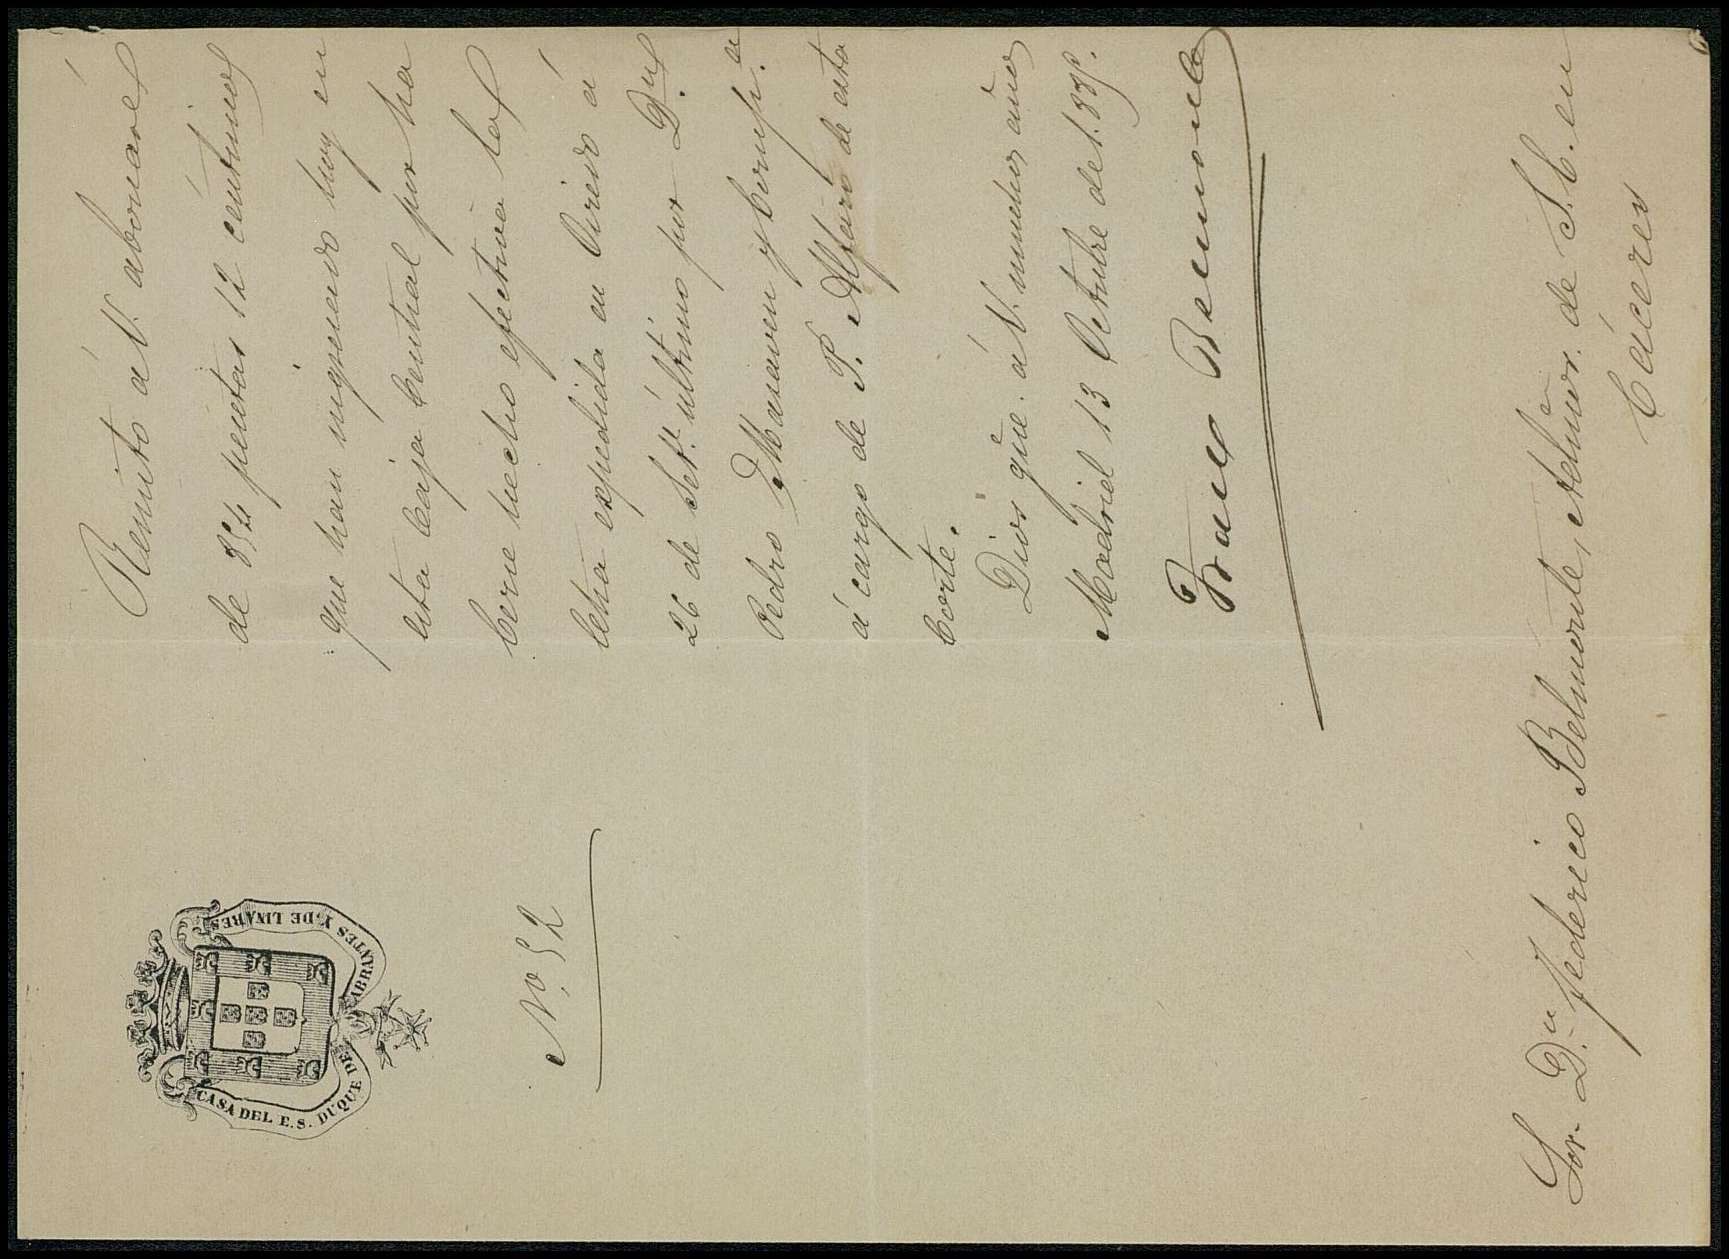 CASA DEL E.S. DUQUE DE ABRANTES Y DE LINARES
Nº 52
Remito á V. abonaré
de 854 pesetas 12 céntimos
que han ingresado hoy en
esta Caja Central por ha
berse hecho efectiva la
letra expedida en Oviedo á
26 de Set. último por D.n
Pedro Masaveu y Comp.a
á cargo de P. Alfaro de esta
Corte.
Dios güe. á V. muchos años
Madrid 13 Octubre de
Sor. D.n Federico Belmonte, Admor. de S.C. en
Cáceres